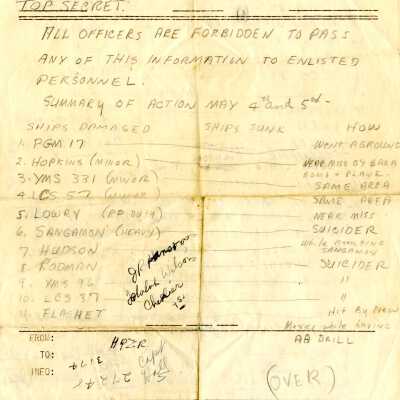 TOP SECRET.
ALL OFFICERS ARE FORBIDDEN TO PASS
ANY OF THIS INFORMATION TO ENLISTED
PERSONNEL.
SUMMARY OF ACTION MAY 4th and 5th -
SHIPS DAMAGED SHIPS SUNK HOW
1. PGM 17 WENT AGROUND
2. HOPKINS (MINOR) NEAR MISS BY BAKA
BOMB + PLANE
3. YMS 331 (MINOR) SAME AREA
4. LCS 57 (MINOR) SAME AREA
5. LOWRY NEAR MISS
6. SANGAMON (HEAVY) SUICIDER
7. HUDSON While assisting
SANGAMON
8. RODMAN SUICIDER
9. YMS 96 "
10. LCS 37 "
FLASHET Hit By
while having
AA DRILL
Watson
FROM: HPZR
TO: 3174
INFO: 27274
(OVER)